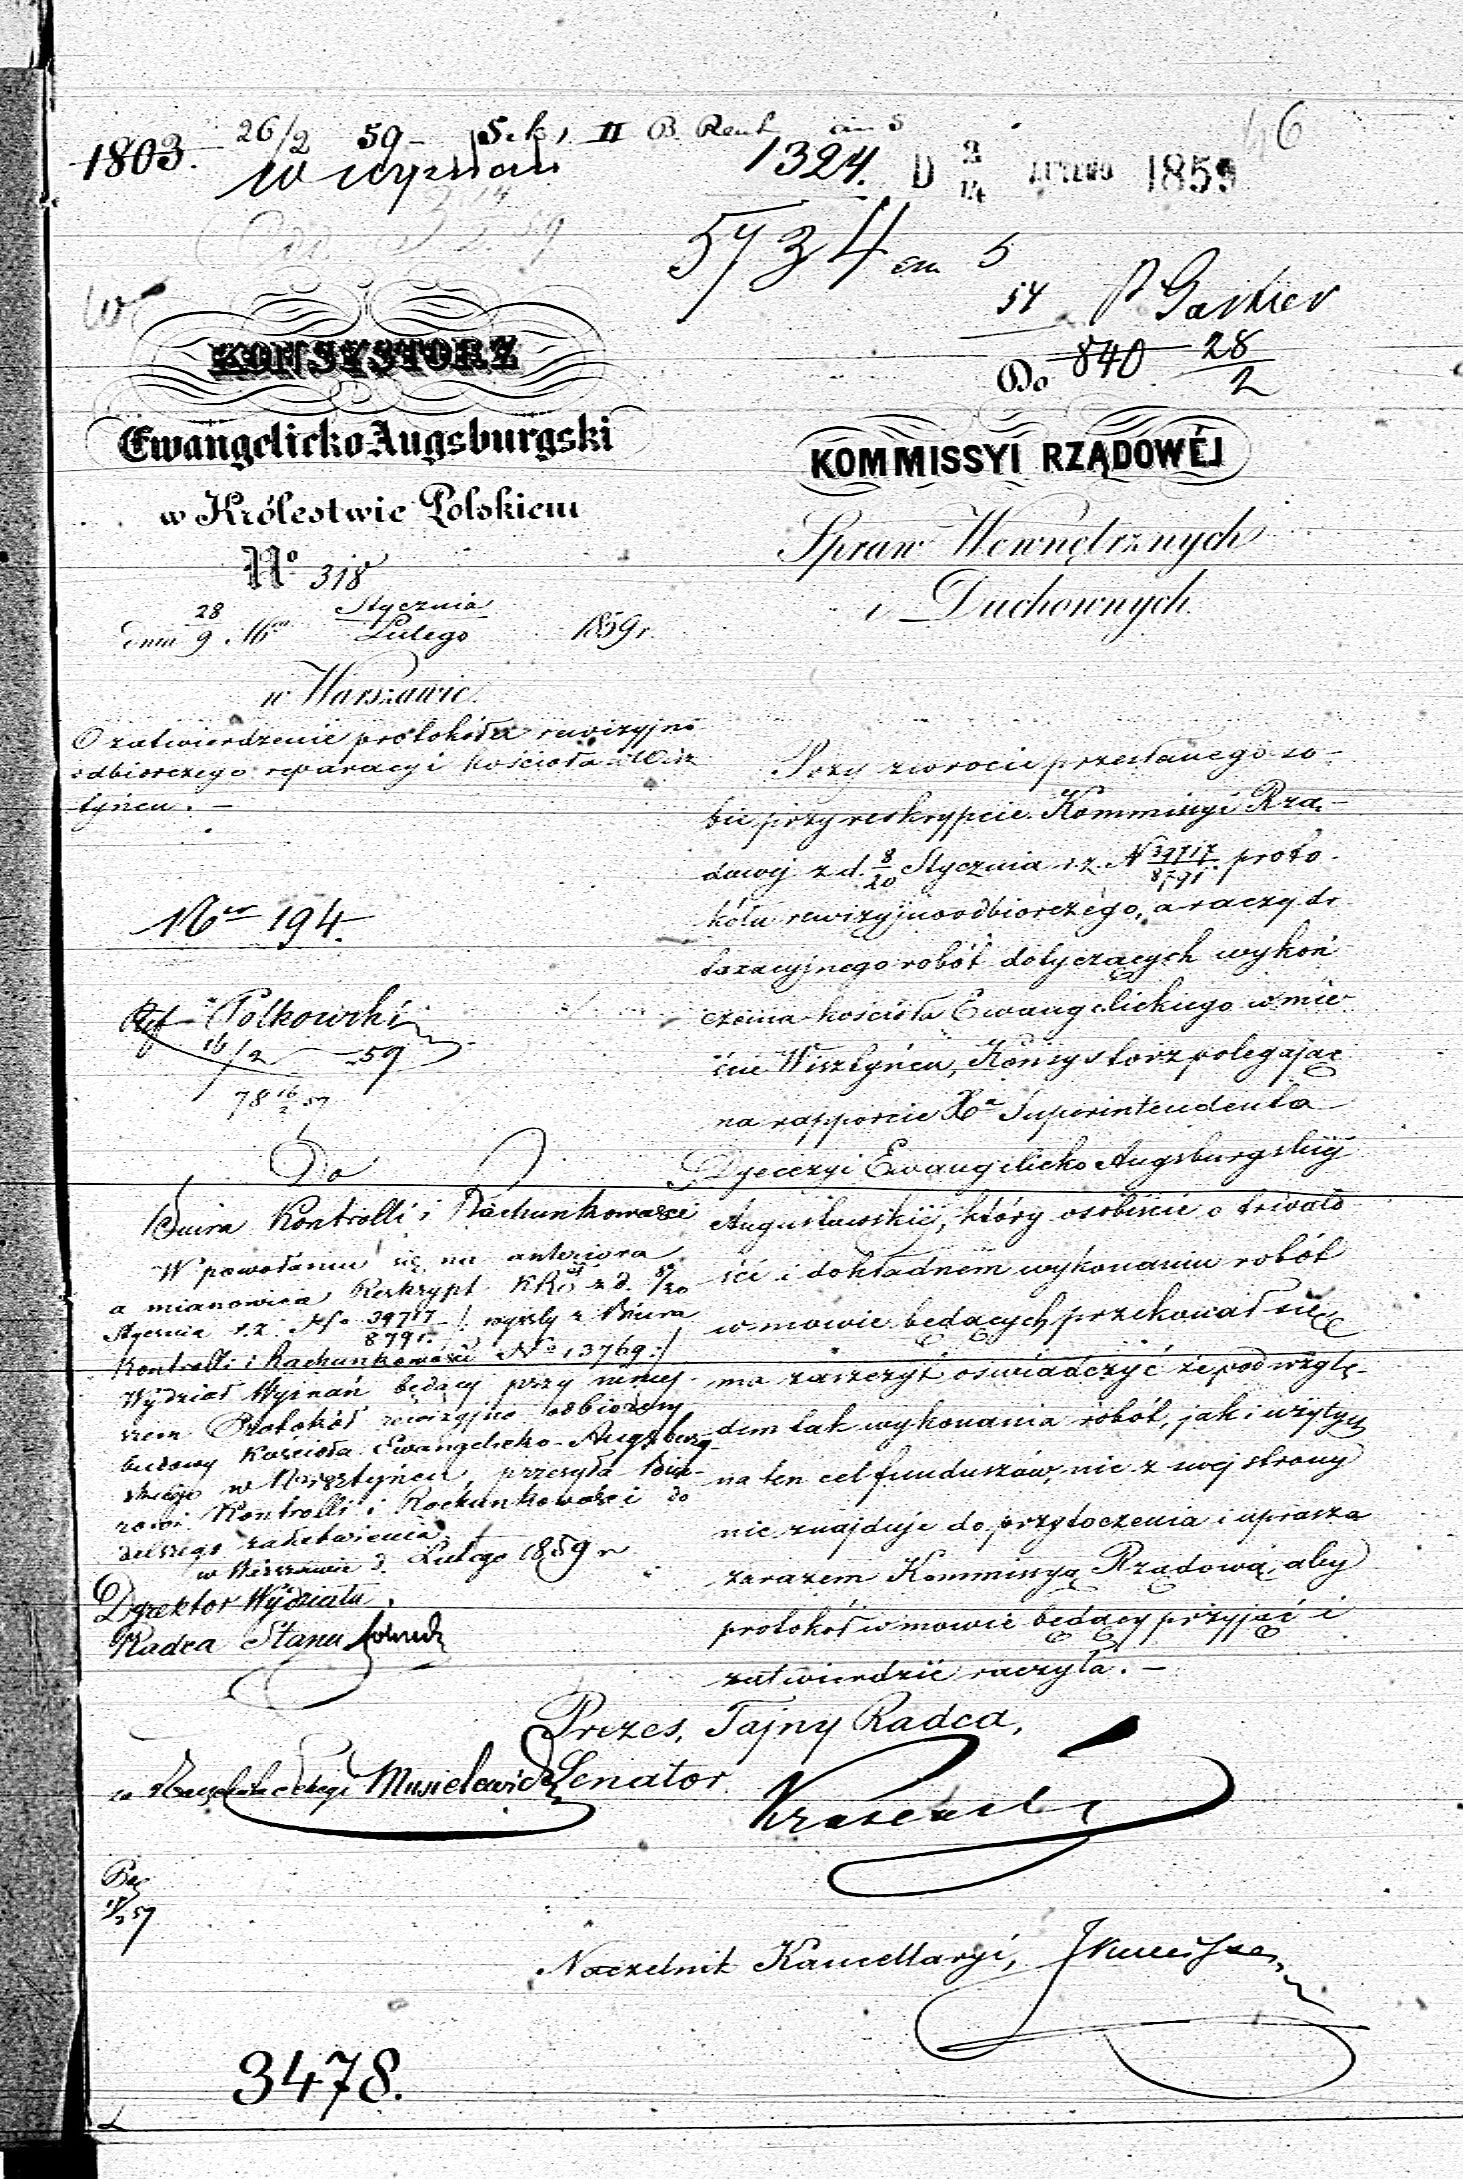 1803.
26/2 59 – Sek, II B.
1324.
D 2/14 LUTEGO 1859
46
5734
5
54
28/2
840
Do
KONSYSTORZ
Ewangelicko Augsburgski
w Królestwie Polskiem
No 318
dnia 28/9 Stycznia/Lutego 1859 r.
w Warszawie.
O zatwierdzenie protokółu rewizyjno
odbiorczego reparacyi kościoła w Wisz
tyńcu. –
KOMMISSYI RZĄDOWÉJ
Spraw Wewnętrznych
i Duchownych.
Przy zwrocie przesłanego so-
bie przy reskrypcie Kommissyi Rzą-
dowej z d. 8/20 Stycznia r. z. N 39717/8791. proto-
kółu rewizyjno odbiorczego, a raczej de
taxacyjnego robót dotyczących wykoń
czenia kościoła Ewangelickiego w mie
ście Wisztyńcu, Konsystorz polegając
na rapporcie Xa Superintendenta
Dyecezyi Ewangelicko Augsburgskiej
Augustowskiej, który osobiście o trwało
ści i dokładnem wykonaniu robót
w mowie będących przekonał się
ma zaszczyt oświadczyć że pod wzglę-
dem tak wykonania robót, jak i użytych
na ten cel funduszów, nic z swej strony
nie znajduje do przytoczenia i uprasza
zarazem Kommissyą Rządową, aby
protokół w mowie będący przyjąć i
zatwierdzić raczyła. –
Ner 194.
Ref Polkowski
16/2 59
78 16/2 59
Do
Biura Kontrolli i Rachunkowości
W powołaniu się na anteriora
a mianowicie Reskrypt KRS z d. 8/20
Stycznia r. z. No 39717/8791 /: wyszły z Biura
Kontrolli i Rachunkowości No 13769 :/
Wydział Wyznań będący przy niniej-
szem Protokół rewizyjno odbiorczy
budowy Kościoła Ewangelicko-Augsburg-
skiego w Wisztyńcu, przesyła Biu-
rowi Kontrolli i Rachunkowości do
dalszego załatwienia.
w Warszawie d. Lutego 1859 r
Dyrektor Wydziału,
Radca Stanu
Prezes, Tajny Radca,
Senator
Musielewicz
Naczelnik Kancellaryi,
3478.